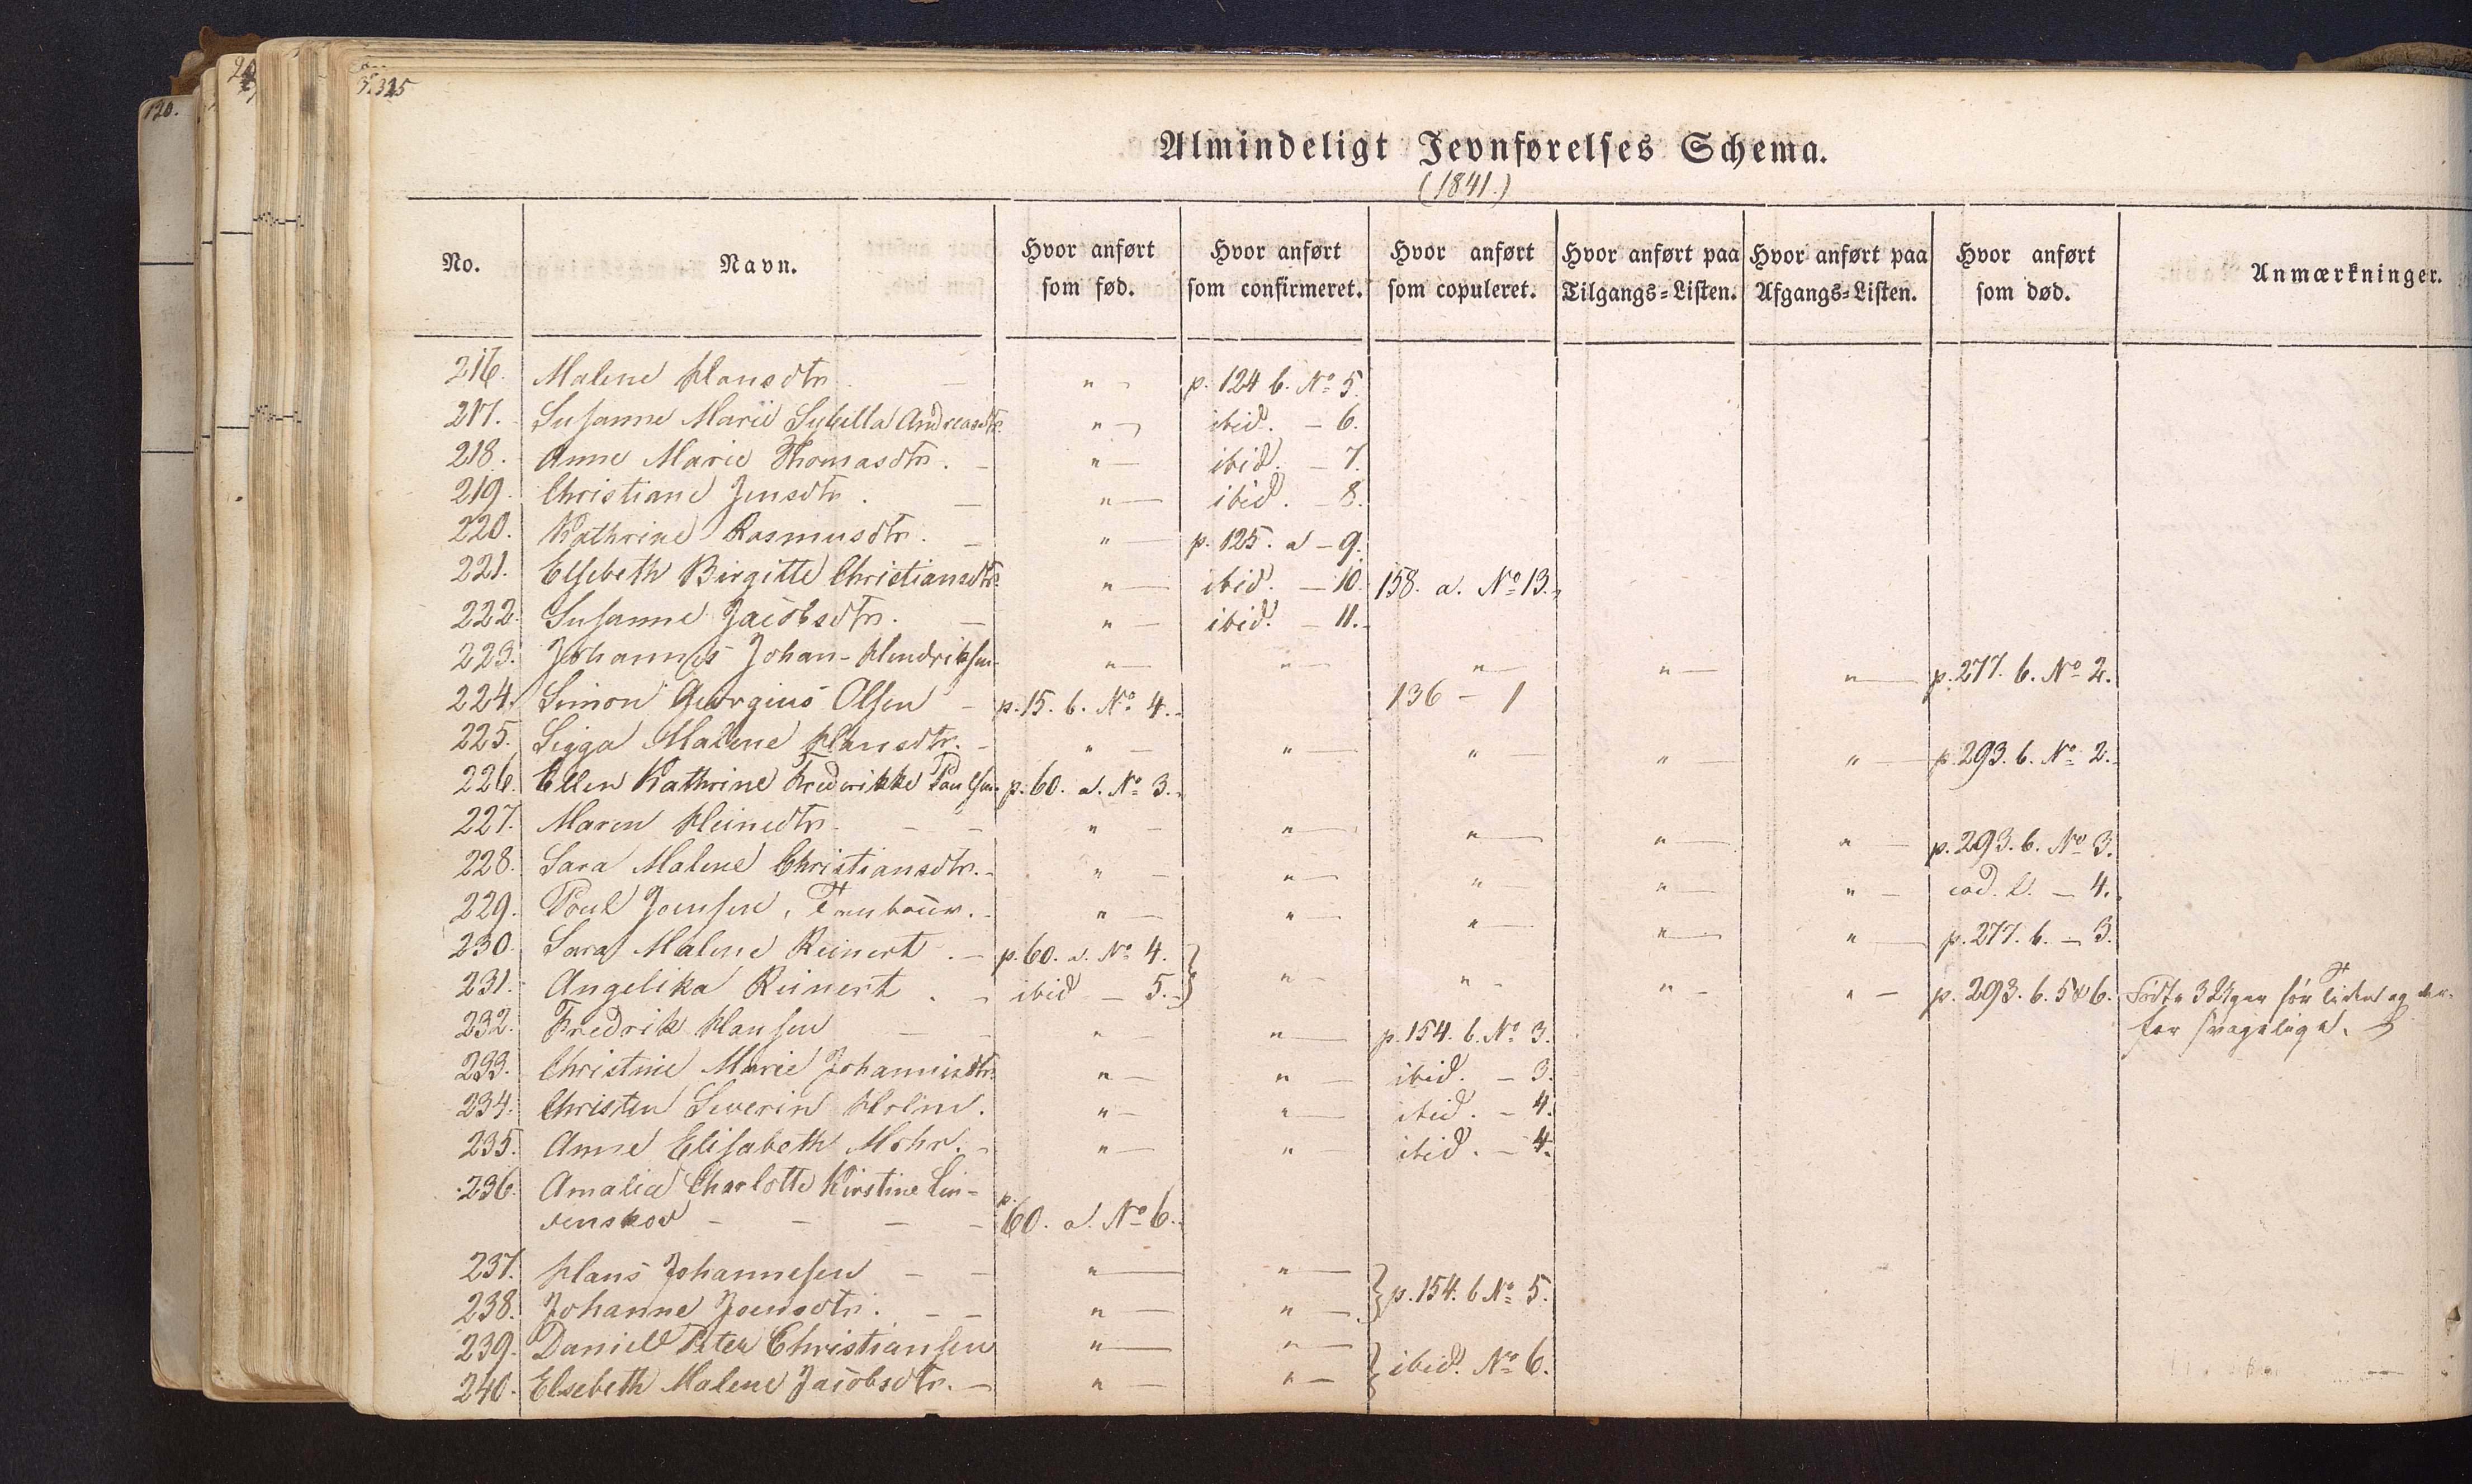 120.
325
Almindeligt Jevnførelses Schema.
(1841.)
No.
Navn.
Hvor anført som fød.
Hvor anført som confirmeret.
Hvor anført som copuleret.
Hvor anført paa Tilgangs-Listen.
Hvor anført paa Afgangs-Listen.
Hvor anført som død.
Anmærkninger.
216. Malene Hansdtr. — " — p. 124 b. No 5.
217. Susanne Marie Sybilla Andreasdtr. " — ibid. — 6.
218. Anne Marie Thomasdtr. — " — ibid. — 7.
219. Christiane Jensdtr. — " — ibid. — 8.
220. Kathrine Rasmusdtr. — " — p. 125. a — 9.
221. Elsebeth Birgitte Christiansdtr. " — ibid. — 10. 158. a. No 13.
222. Susanne Jacobsdtr. — " — ibid. — 11.
223. Johannes Johan-Hendriksen " — " — " — " — " — p. 277. b. No 2.
224. Simon Georgius Olsen — p. 15. b. No 4. 136 — 1
225. Sigga Malene Hansdtr. — " — " — " — " — " — p. 293. b. No 2.
226. Ellen Kathrine Frederikke Poulsen p. 60. a. No 3.
227. Maren Heinedtr. — — " — " — " — " — " — p. 293. b. No 3.
228. Sara Malene Christiansdtr. — " — " — " — " — " — eod. l. — 4.
229. Poul Joensen, Tambour. — " — " — " — " — " — p. 277. b. — 3.
230. Sara Malene Reinert. — p. 60. a. No 4.
231. Angelika Reinert. — ibid — 5. } " — " — " — " — p. 293. b. 5 & 6. Födte 3 Uger för Tiden og der-
for svagelige.
232. Fredrik Hansen — — " — " — p. 154. b. No 3.
233. Christine Marie Johannisdtr. " — " — ibid. — 3.
234. Christen Severin Holm. " — " — ibid. — 4.
235. Anne Elisabeth Mohr. — " — " — ibid. — 4.
236. Amalia Charlotte Kirstine Lin-
denskov — — — — p. 60. a. No 6.
237. Hans Johannesen — — " — " —
238. Johanne Joensdtr. — — " — " — } p. 154. b No 5.
239. Daniel Peter Christiansen " — " —
240. Elsebeth Malene Jacobsdtr. — " — " — } ibid. No 6.